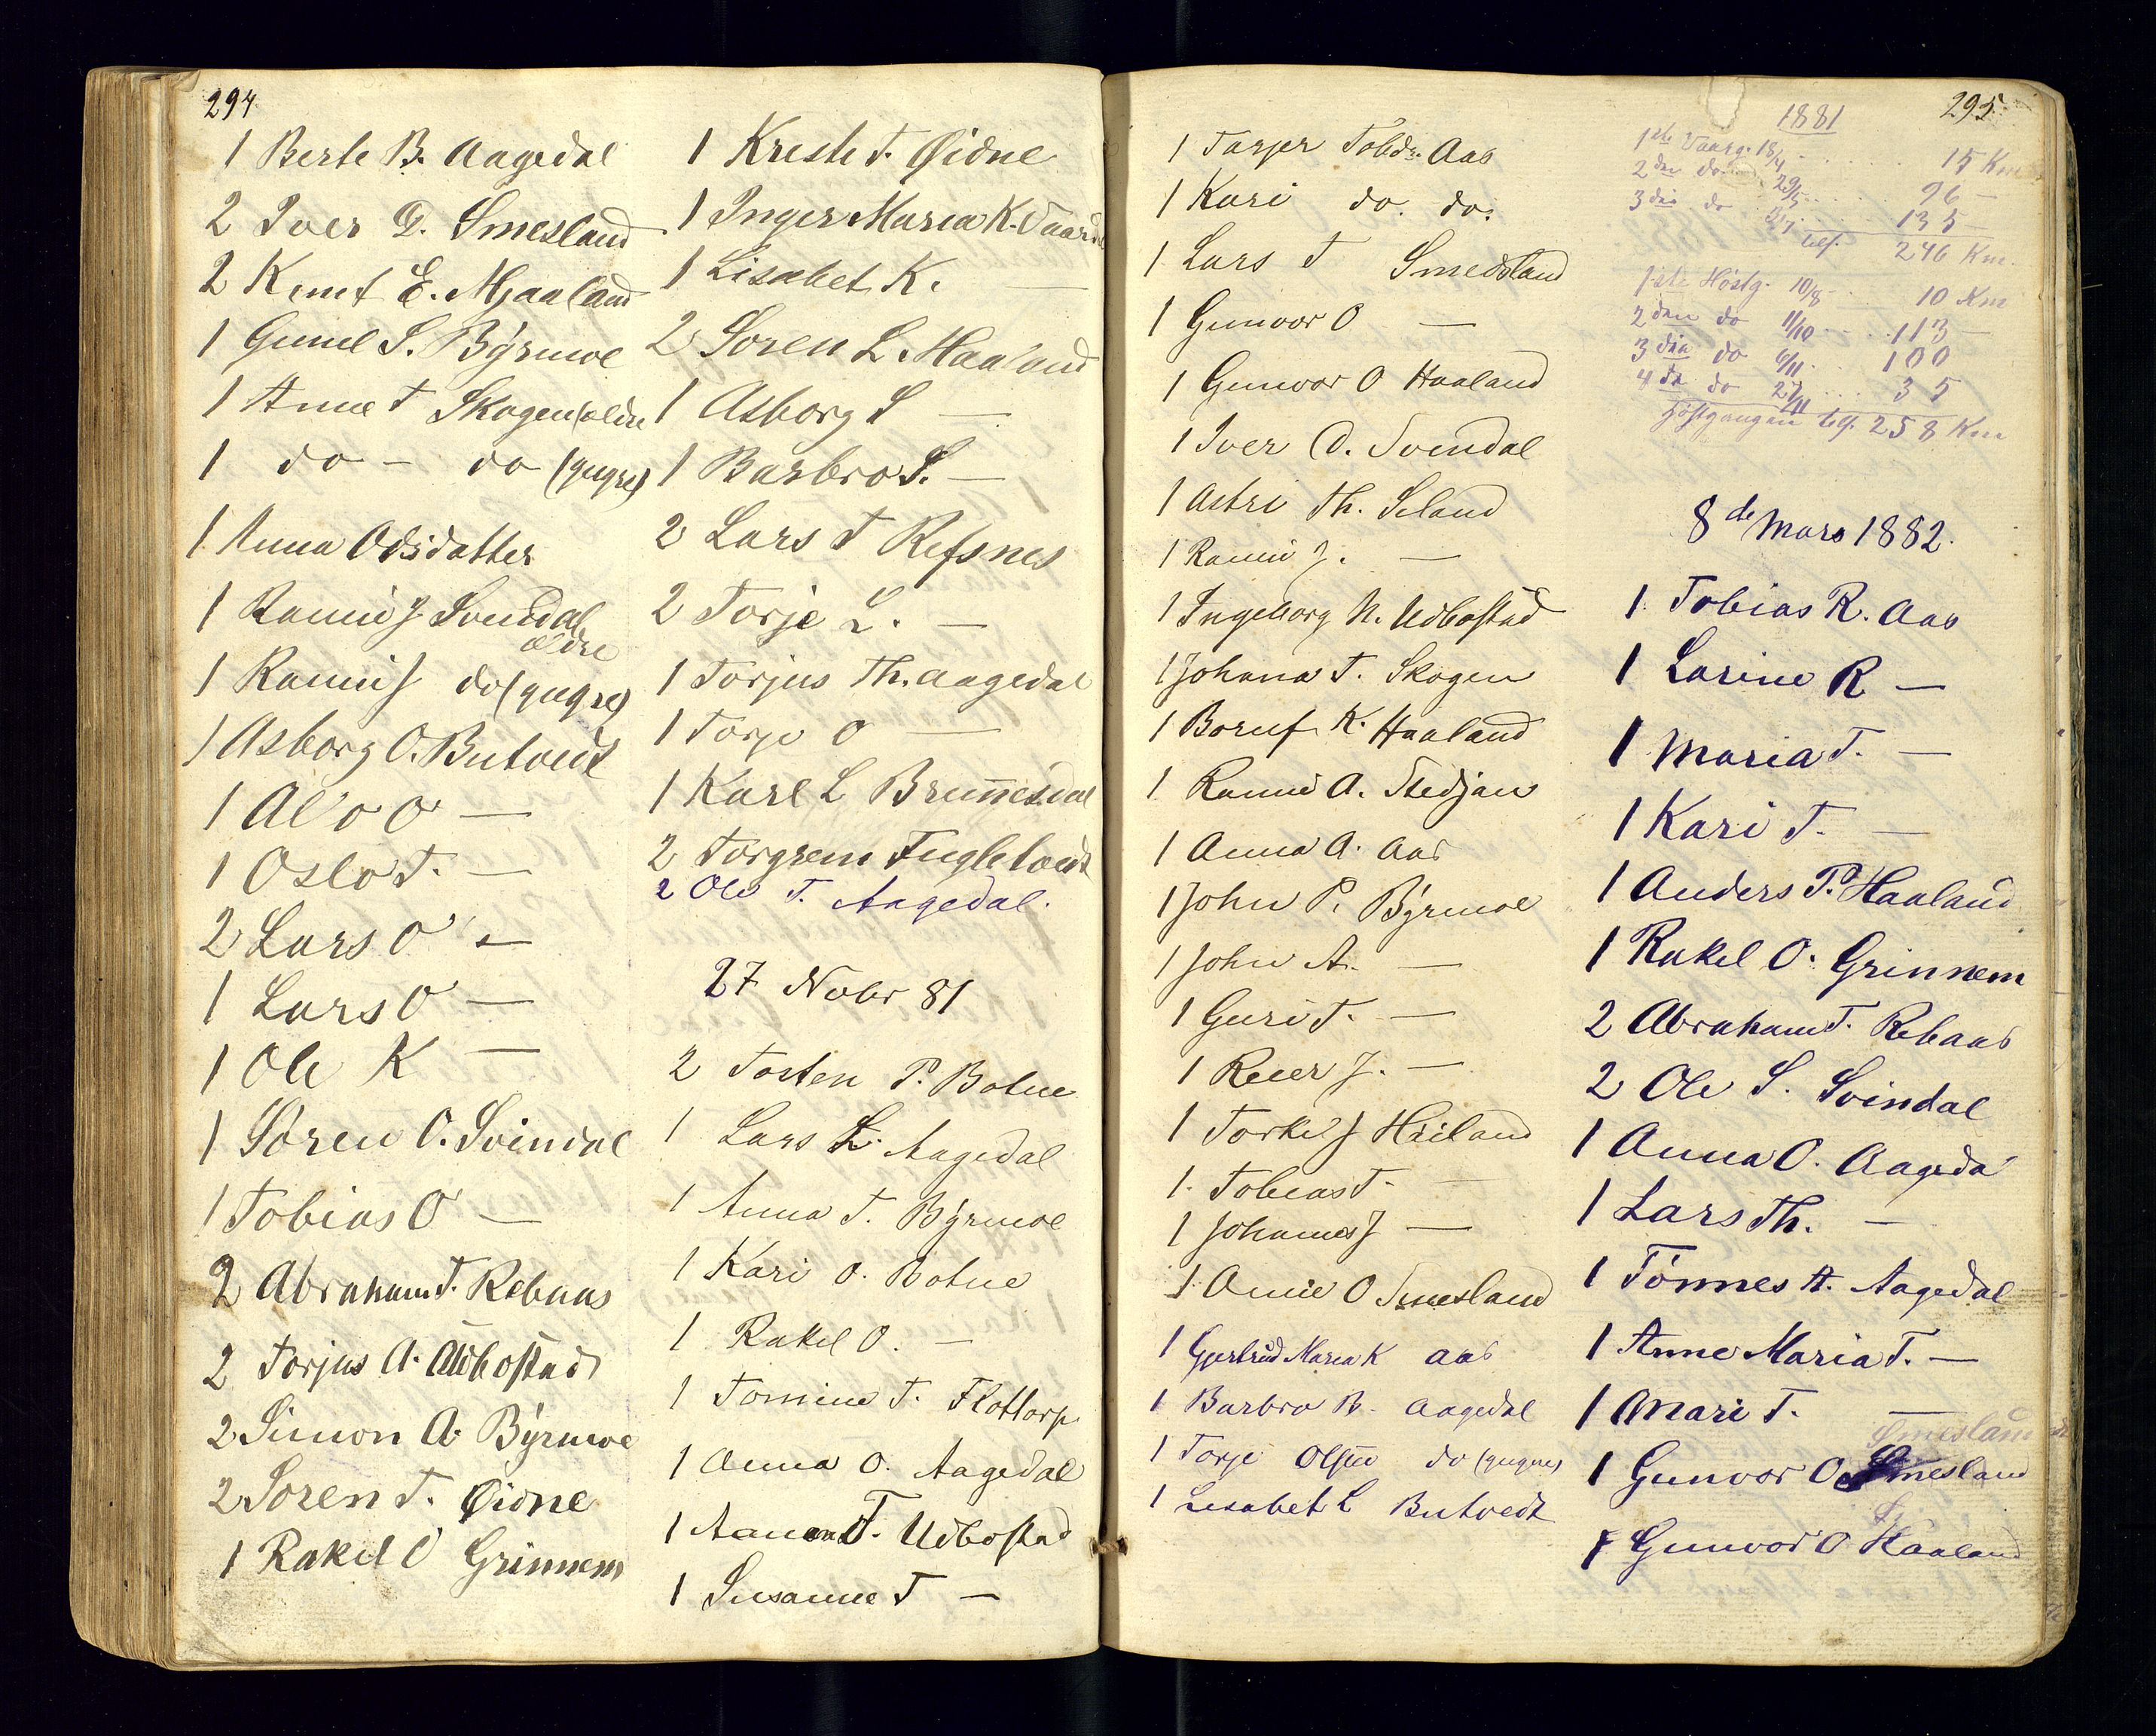 294
1 Berte B. Aagedal
2 Iver D. Smesland
2 Knut E. Mjaaland
1 Gunel S. Byrmoe
1 Anne T Skogen (eldre
1 do - do (yngre)
1 Anna Odsdatter
1 Ranni J. Svindal
eldre
1 Ranni J do (yngre)
1 Asborg O. Butvedt
1 Alo O —
1 Oslo T. —
2 Lars O —
1 Lars O —
1 Ole K —
1 Søren O. Svindal
1 Tobias O —
2 Abraham T. Rebaas
2 Torjus A. Udbostad
2 Simon A. Byrmoe
2 Søren T. Øidne
1 Rakel O Grinnem
1 Kreste T. Øidne
1 Inger Maria K.
1 Lisabet K. —
2 Søren L. Haaland
1 Asborg S —
1 Barbro S. —
2 Lars T Refsnes
2 Torje L. —
1 Torjus Th. Aagedal
1 Torje O —
1 Karl L Brunnesdal
2 Torgrem Fugletvedt
2 Ole T. Aagedal.
27 Nobr 81
2 Torten P. Botne
1 Lars L. Aagedal
1 Anna T. Byrmoe
1 Kari O. Botne
1 Rakel O. —
1 Tomine T. Flottorp
1 Anna O. Aagedal
1 T. Udbostad
1 Susanne T —
295
1 Torjer Tobds. Aas
1 Kari do. do.
1 Lars T Smedsland
1 Gunvor O —
1 Gunvor O Haaland
1 Iver O. Svindal
1 Astri Th. Seland
1 Ranni J. —
1 Ingeborg N. Udbostad
1 Johana T. Skogen
1 K. Haaland
1 Ranni A. Stedjan
1 Anna A. Aas
1 John P. Byrmoe
1 John A. —
1 Guri T. —
1 Reier J. —
1 Torkel J Heiland
1. Tobias T. —
1 Johannes J —
1 Anne O Smesland
1 Gjertrud Maria K Aas
1 Barbro B. Aagedal
1 Torje Olsen do (yngre)
1 Lisabet L Butvedt
1881
1ste Vaarg. 18/4 ...... 15 Km
2den do 29/5 ...... 96 —
3die do ...... 135
tils. 246 Km.
1ste Høstg. 10/8 .. 10 Km
2den do 11/10 .... 113 —
3die do 6/11 .. 100
4de do 27/11 .... 35
Høstgangen tils. 258 Km
8de Mars 1882.
1. Tobias R. Aas
1 Larine R —
1 Maria T. —
1 Kari T. —
1 Anders P. Haaland
1 Rakel O. Grinnem
2 Abraham T. Rebaas
2 Ole S. Svindal
1 Anna O. Aagedal
1 Lars Th. —
1 Tönnes A. Aagedal
1 Anne Maria T. —
1 Mari T. —
Smesland
1 Gunvor O Smesland
1 Gunvor O Haaland